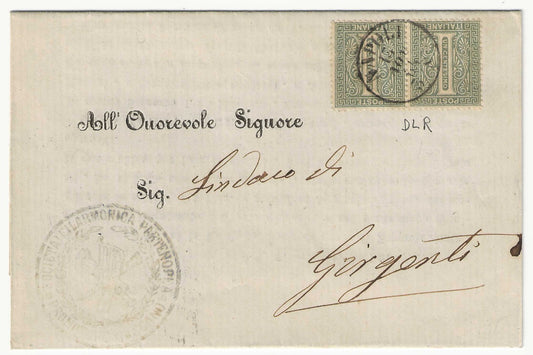 POSTE ITALIANE
NAPOLI
DLR
All' Onorevole Signore
Sig. Sindaco di
Girgenti
FILARMONICA PARTENOPEA